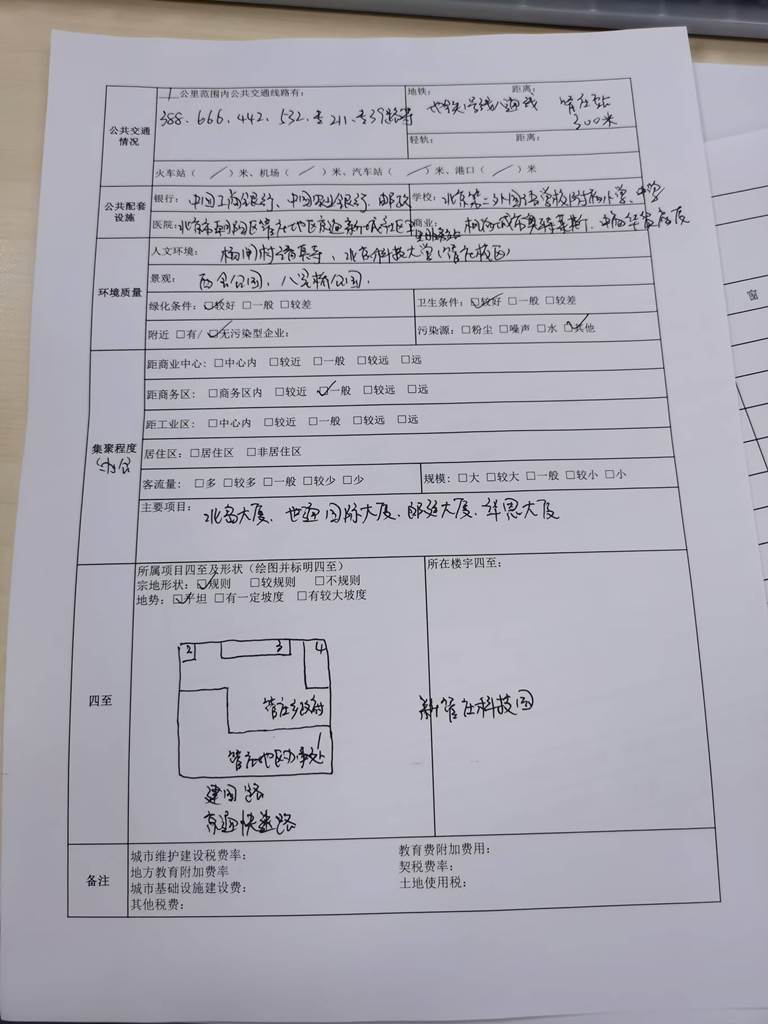 1公里范围内公共交通线路有:
地铁: 距离:
公共交通情况
388、666、442、532、专211、专39路等
地铁1号线八通线 管庄站 300米
轻轨: 距离:
火车站( / )米、机场( / )米、汽车站( / )米、港口( / )米
公共配套设施
银行: 中国工商银行、中国农业银行、邮政
学校: 北京第二外国语学校附属小学、中学
医院: 北京市朝阳区管庄地区京通新城社区卫生服务站
商业:
环境质量
人文环境: 杨闸村清真寺、北京科技大学(管庄校区)
景观: 西会公园、八里桥公园、
绿化条件: ☑较好 □一般 □较差
卫生条件: ☑较好 □一般 □较差
附近 □有/ ☑无污染型企业:
污染源: □粉尘 □噪声 □水 ☑其他
集聚程度
(办公)
距商业中心: □中心内 □较近 □一般 □较远 □远
距商务区: □商务区内 □较近 ☑一般 □较远 □远
距工业区: □中心内 □较近 □一般 □较远 □远
居住区: □居住区 □非居住区
客流量: □多 □较多 □一般 □较少 □少
规模: □大 □较大 □一般 □较小 □小
主要项目: 北岛大厦、世通国际大厦、邮通大厦、祥恩大厦
四至
所属项目四至及形状(绘图并标明四至)
所在楼宇四至:
宗地形状: ☑规则 □较规则 □不规则
地势: ☑平坦 □有一定坡度 □有较大坡度
2 3 4
管庄乡政府
新管庄科技园
1
管庄地区办事处
建国路
京通快速路
备注
城市维护建设税费率:
教育费附加费用:
地方教育附加费率
契税费率:
城市基础设施建设费:
土地使用税:
其他税费:
窗